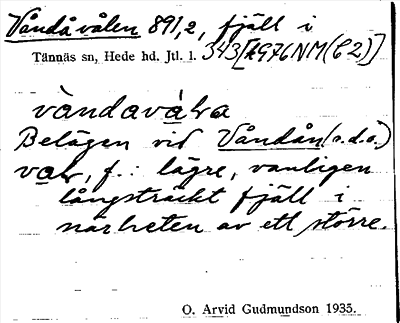 Våndåvålen 891,2, fjäll i
Tännäs sn, Hede hd. Jtl. l. 343[AG76NM(C2)]
vàndavàlva
Belägen vid Våndån (s.d.o.)
valv, f.: lägre, vanligen
långsträckt fjäll i
närheten av ett större.
O. Arvid Gudmundson 1935.